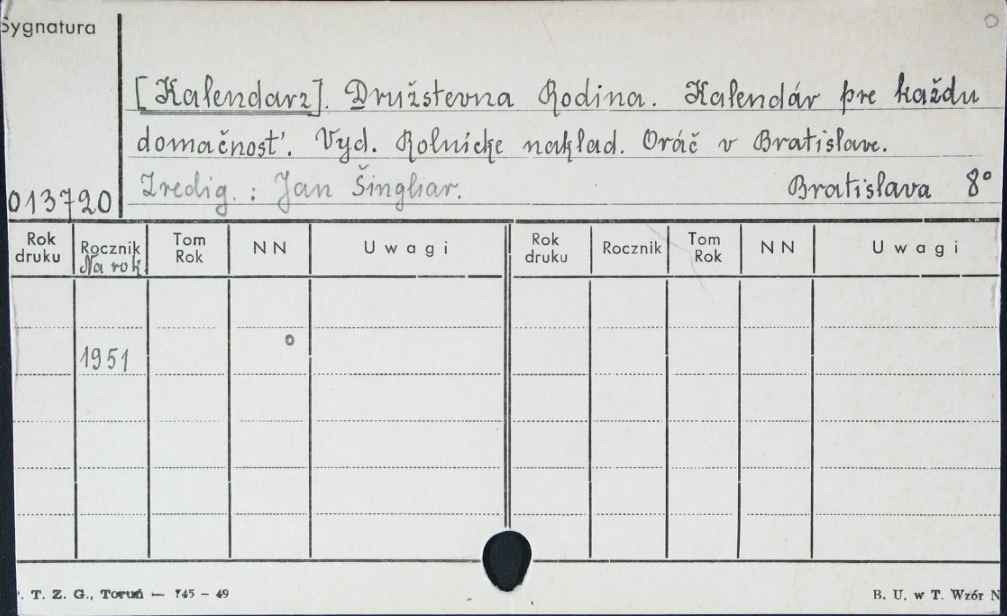 Sygnatura
[Kalendarz]. Družstevna Rodina. Kalendár pre každu
domačnosť. Vyd. Rolnicke nakład. Oráč v Bratislave.
Zredig. : Jan Šingliar. Bratislava 8°
013720
Rok druku Rocznik Na rok Tom Rok NN Uwagi Rok druku Rocznik Tom Rok NN Uwagi
1951
T. Z. G., Toruń — 745 - 49 B. U. w T. Wzór N